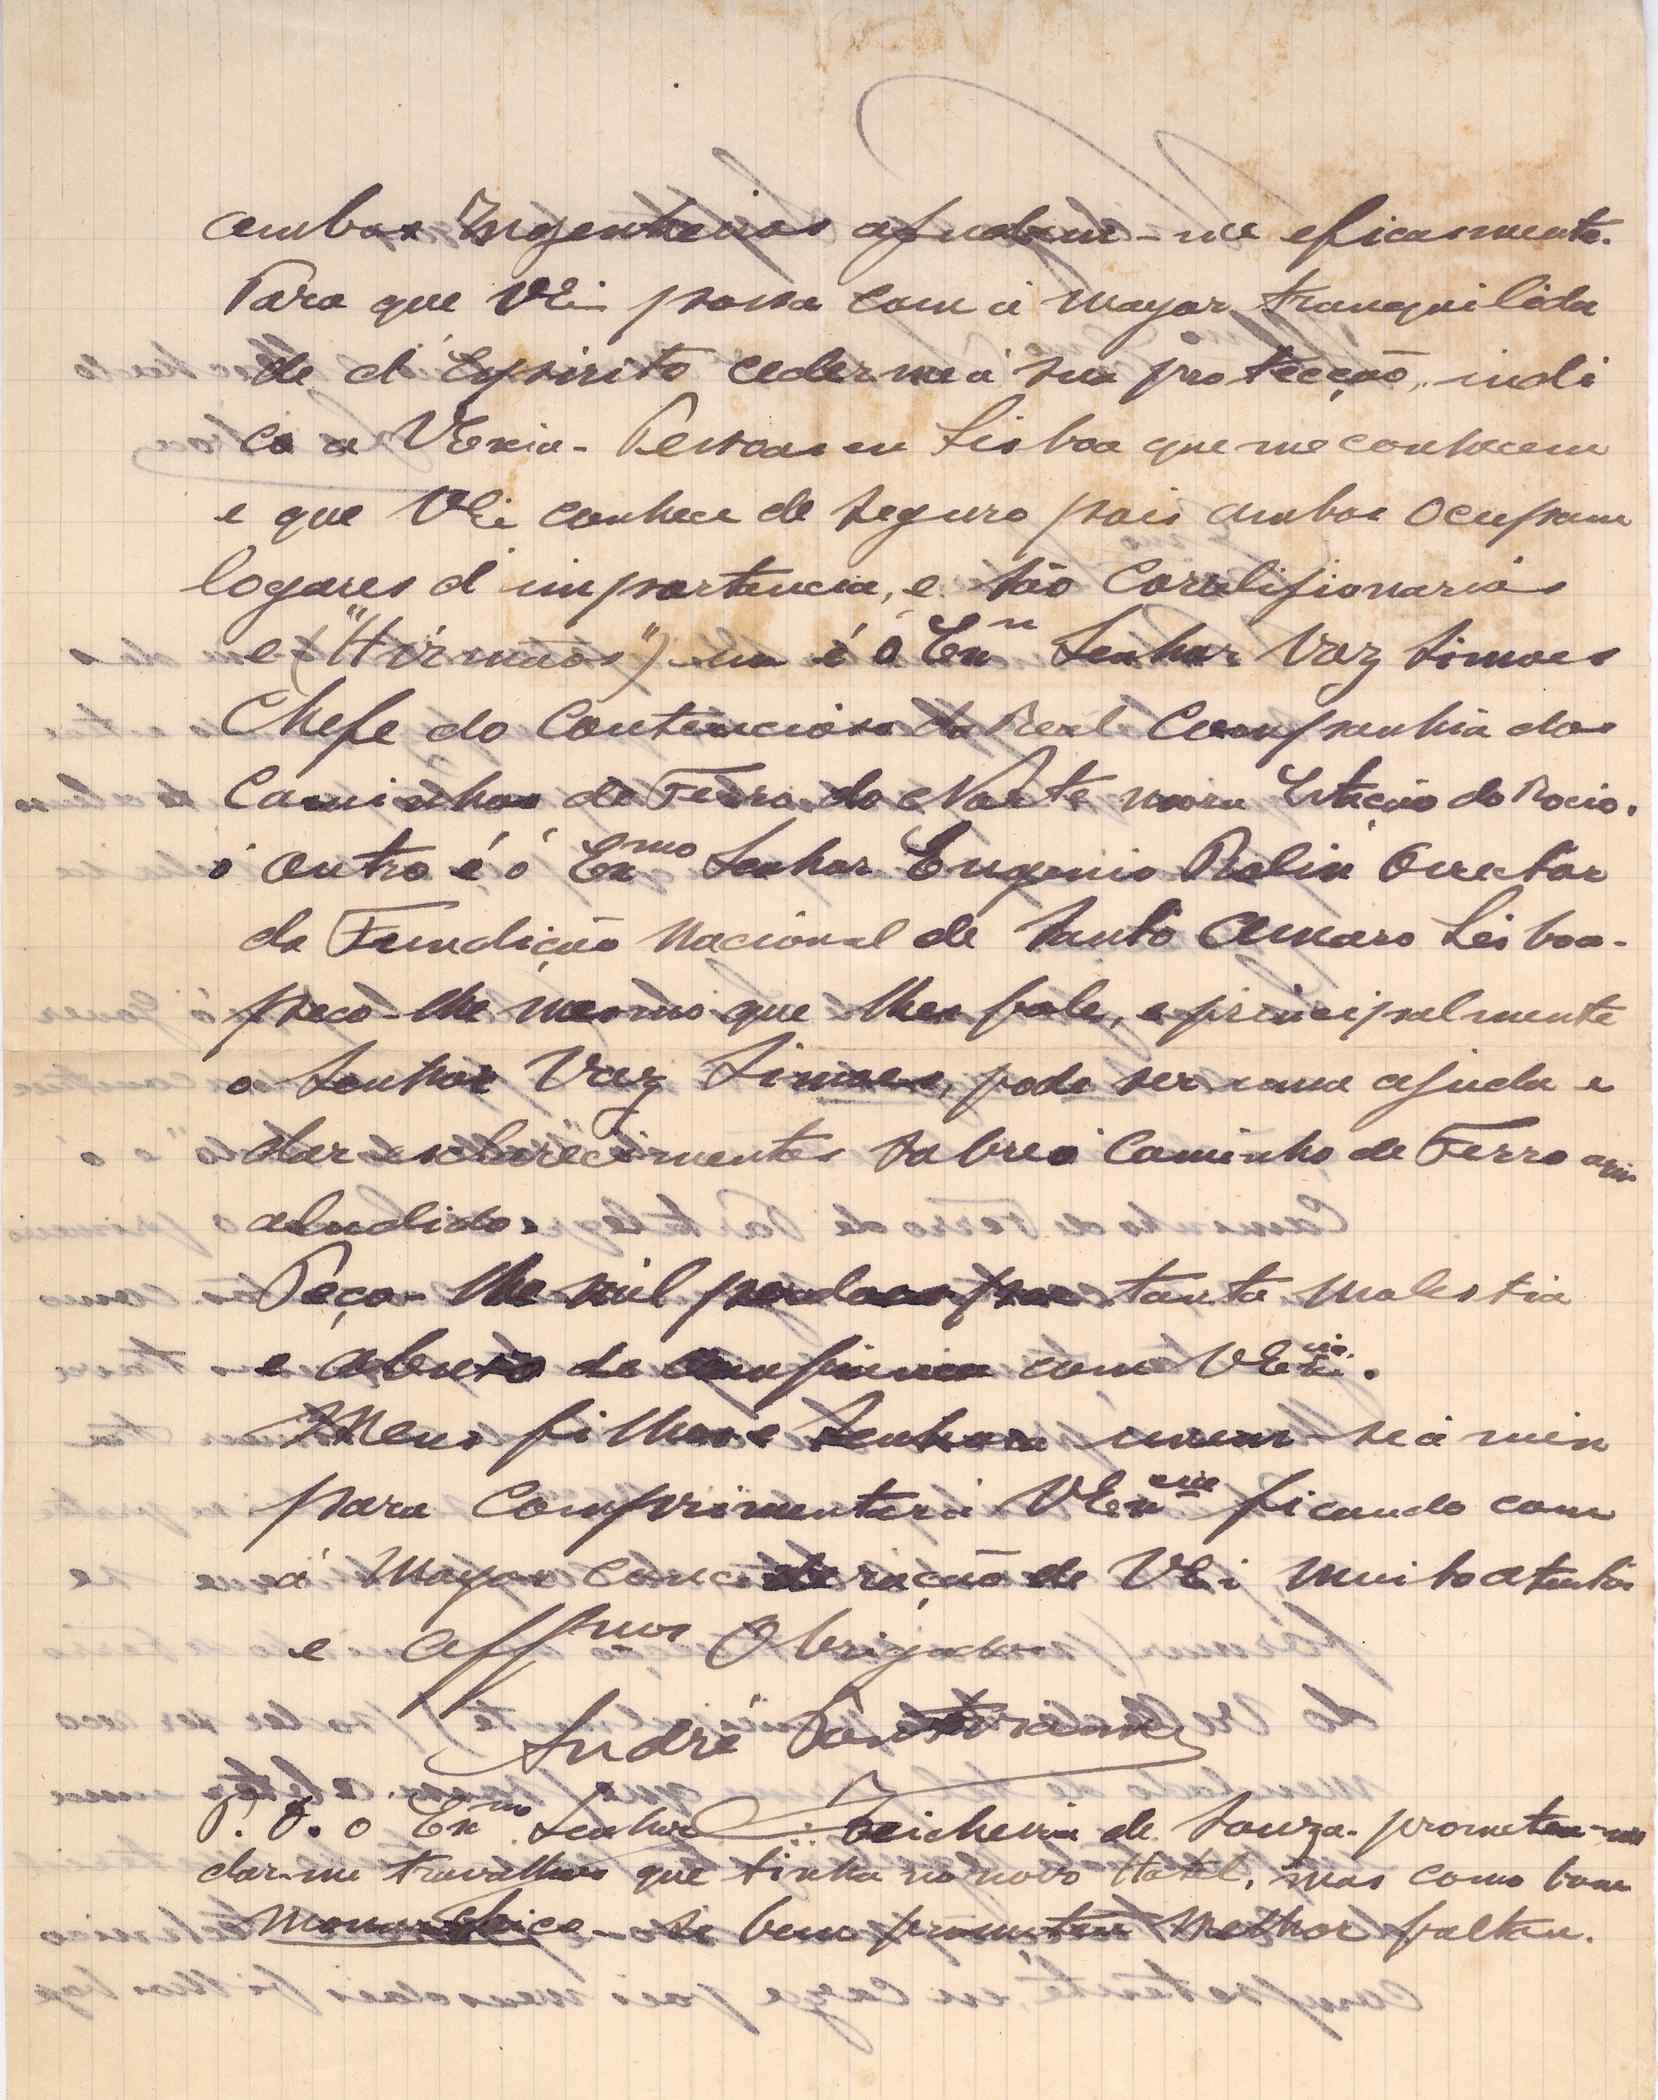 ambos Ingenheiros ajudam-me eficasmente.
Para que VEi possa com á mayor tranquilida
de d'Espirito ceder me á sua protecção, indi
co a VExia - Pessoas en Lisboa que me conhecem
e que VEi conhece de seguro pois ambos ocupam
logares d'importancia, e são Correlijionarios
e ("Hirmãos") um é ó Exn Senhor Vaz Simoes
Chefe do Contencioso da Real Companhia dos
Caminhos de Ferro do Norte Estação do Rocio.
ó outro é ó Exmo Senhor Eugenio Director
da Fundição Nacional de Santo Amaro Lisboa-
peço-lhe mesmo que lhes fale, e principalmente
o Senhor Vaz Simoes, pode ser uma ajuda e
dar esclarecimentos sobre ó Caminho de Ferro aqui
aludido.
Peço-lhe mil perdoes por tanta molestia
e abuso de confiança com VExia.
Meus filhos e Senhora unem-se á min
para Comprimentar á VExcia ficando com
á Mayor Concideração de VEi muito atento
e Affmos Obrigado
André
P. S. o Exmo Senhor Teicheira de Souza prometeu-me
dar-me travalhos que tinha no novo Hotel, mas como bom
Monarchico - se bem prometeu Melhor faltou.